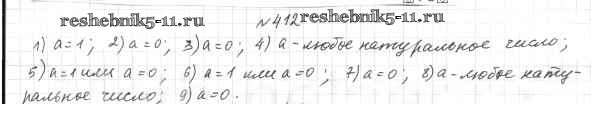 reshebnik5-11.ru №412 reshebnik5-11.ru
1) a=1; 2) a=0; 3) a=0; 4) a-любое натуральное число;
5) a=1 или a=0; 6) a=1 или a=0; 7) a=0; 8) a-любое нату-
ральное число; 9) a=0.